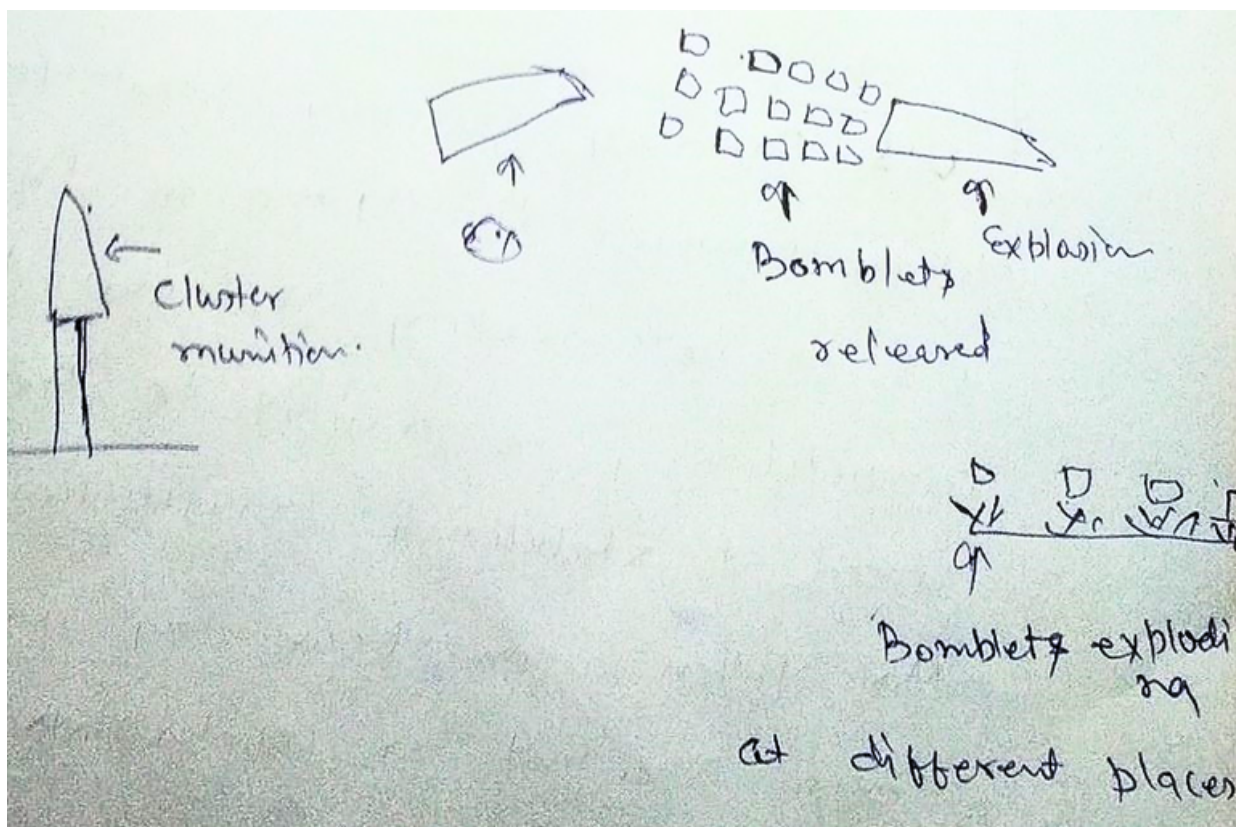 Cluster
munition.
Bomblets
released
Explosion
Bomblets explodi
ng
at different places